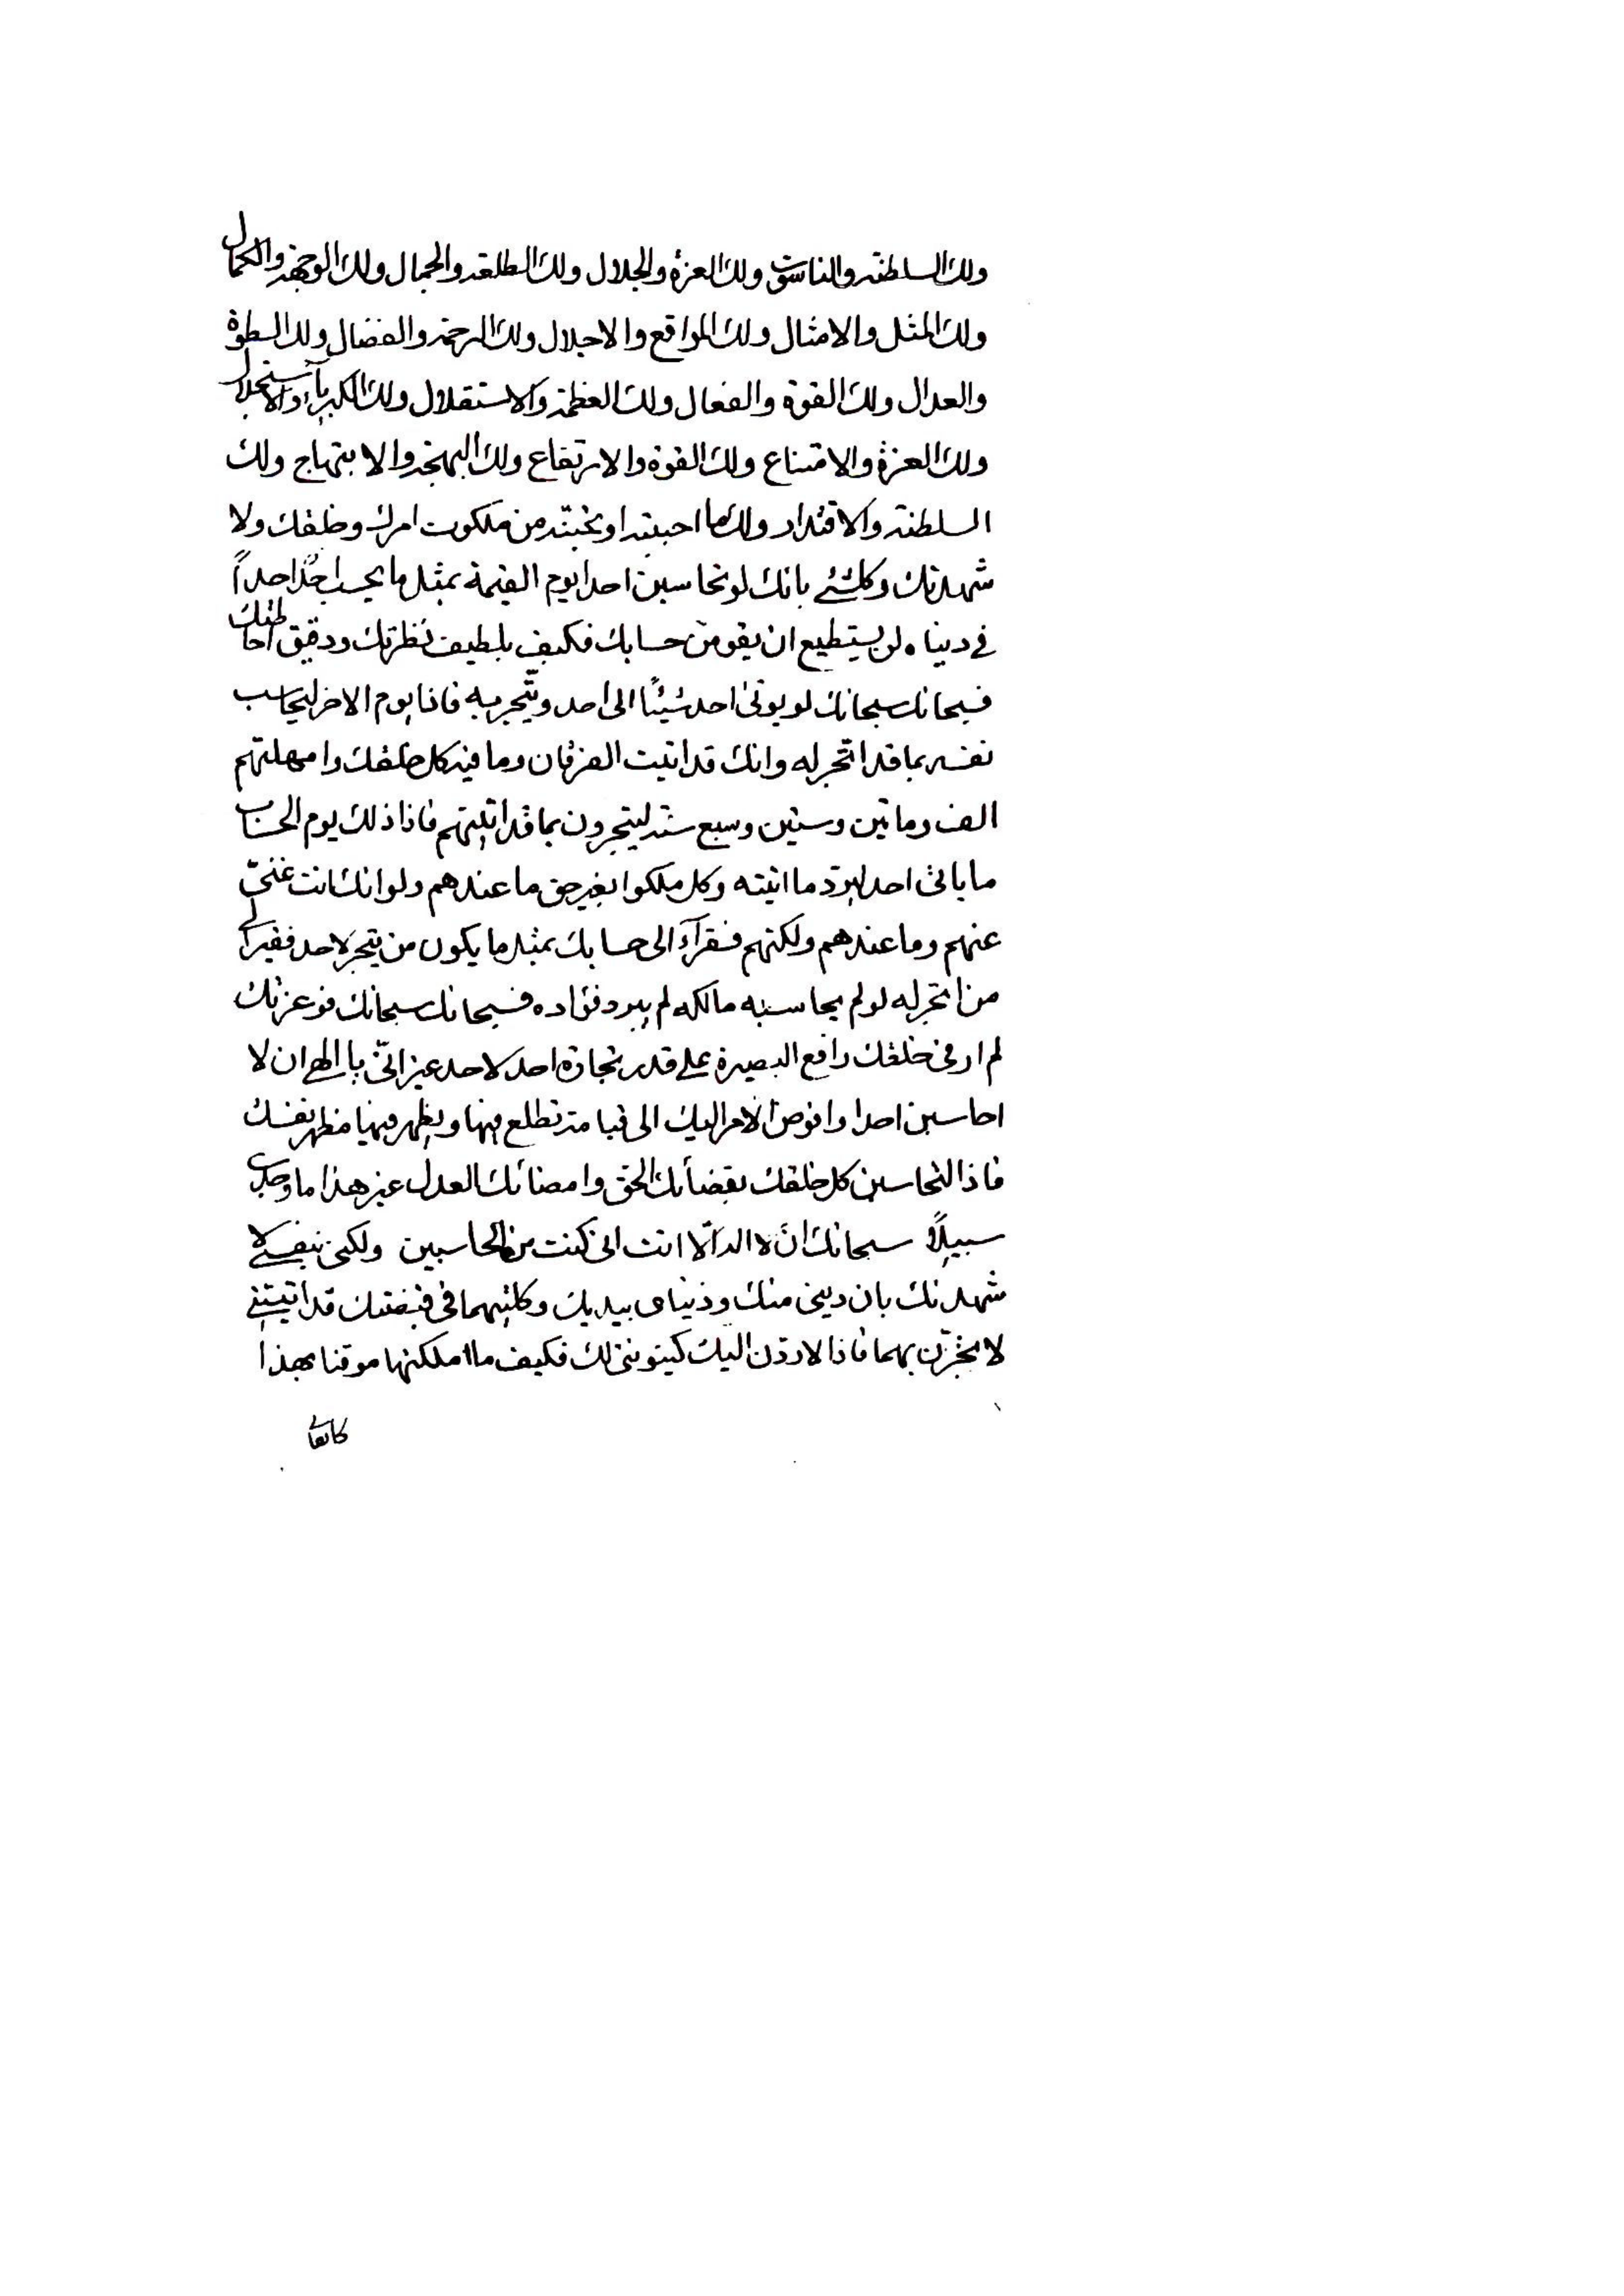 ولك السلطنه والناسوت ولك العزة والجلال ولك الطلعه والجمال ولك الوجهه والكمال
ولك المثل والامثال ولك المواقع والاجلال ولك الرحمة والفضال ولك السطوة
والعدال ولك القوة والفعال ولك العظمة والاستقلال ولك الكبرياء والاستجلال
ولك العزة والامتناع ولك القوة والارتفاع ولك البهجه والابتهاج ولك
السلطنة والاقتدار ولك ما احببته او تحبنّه من ملكوت امرك وخلقك ولا
شهدنك وكلشئ بانك لو تحاسبن احدا يوم القيمة بمثل ما يحسب احدًا احداً
في دنياه لن يستطيع ان يقومن حسابك فكيف بلطيف نظرتك ودقيق احاطتك
فسبحانك سبحانك لو يوتى احد شيئًا الى احد ويتّجر به فاذا يوم الاخر ليحاسب
نفسه بما قد اتّجر له وانك قد اتيت الفرقان وما فيه كل خلقك وامهلتهم
الف ومأتين وستين وسبع سنه ليتجرون بما قد اتيتهم فاذا ذلك يوم الحساب
ما ياتى احد ليردّ ما اتيته وكل ملكوا بغير حق ما عندهم ولو انك انت غنىّ
عنهم وما عندهم ولكنهم فقرآء الى حسابك بمثل ما يكون من يتجر لاحد فقيرا الى
من اتجر له لو لم يحاسبه مالكه لم يبرد فؤاده فسبحانك سبحانك فوعزتك
لم ار فى خلقك رافع البصيرة على قدر تجارة احد لاحد غير انّى يا الهى ان لا
احاسبن احدا وافوض الامر اليك الى قيامة تطلع فيها ويظهر فيها مظهر نفسك
فاذا لتحاسبن كل خلقك بقضائك الحق وامضائك العدل غير هذا ما وجدت
سبيلاً سبحانك ان لا اله الّا انت انى كنت من الحاسبين ولكنى بنفسى لا
شهدنك بان دينى منك ودنياى بيديك وكلتيهما فى قبضتك قد اتيتنى
لا تجرّن بهما فاذا لاردّن اليك كينونتى لك فكيف ما املكنها موقنا بهذا